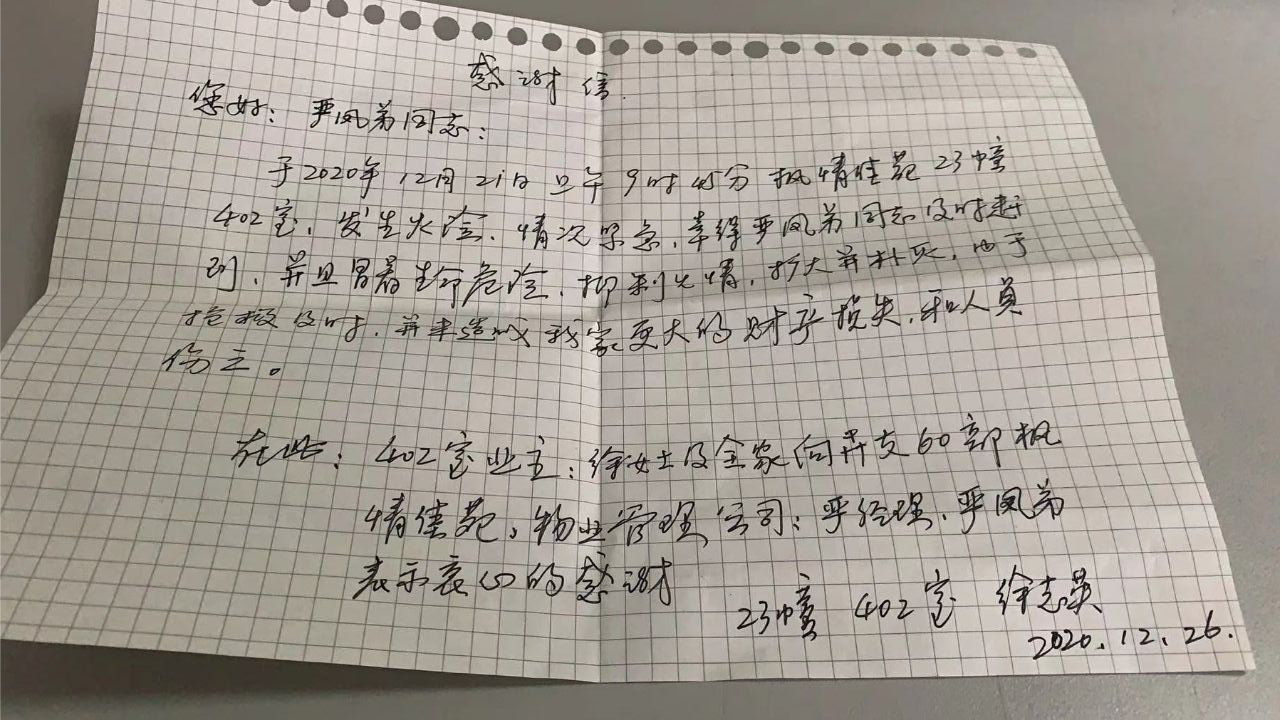 感谢信.
您好: 严凤弟同志:
于2020年12月21日上午9时45分 枫情佳苑23幢
402室, 发生火险. 情况紧急, 幸得严凤弟同志及时赶
到, 并且冒着生命危险, 抑制火情, 扩大并扑灭, 由于
抢救及时, 并未造成我家更大的财产损失, 和人员
伤亡。
在此: 402室业主: 徐女士及全家向 60部枫
情佳苑, 物业管理公司: 严经理, 严凤弟
表示衷心的感谢
23幢 402室 徐志英
2020.12.26.